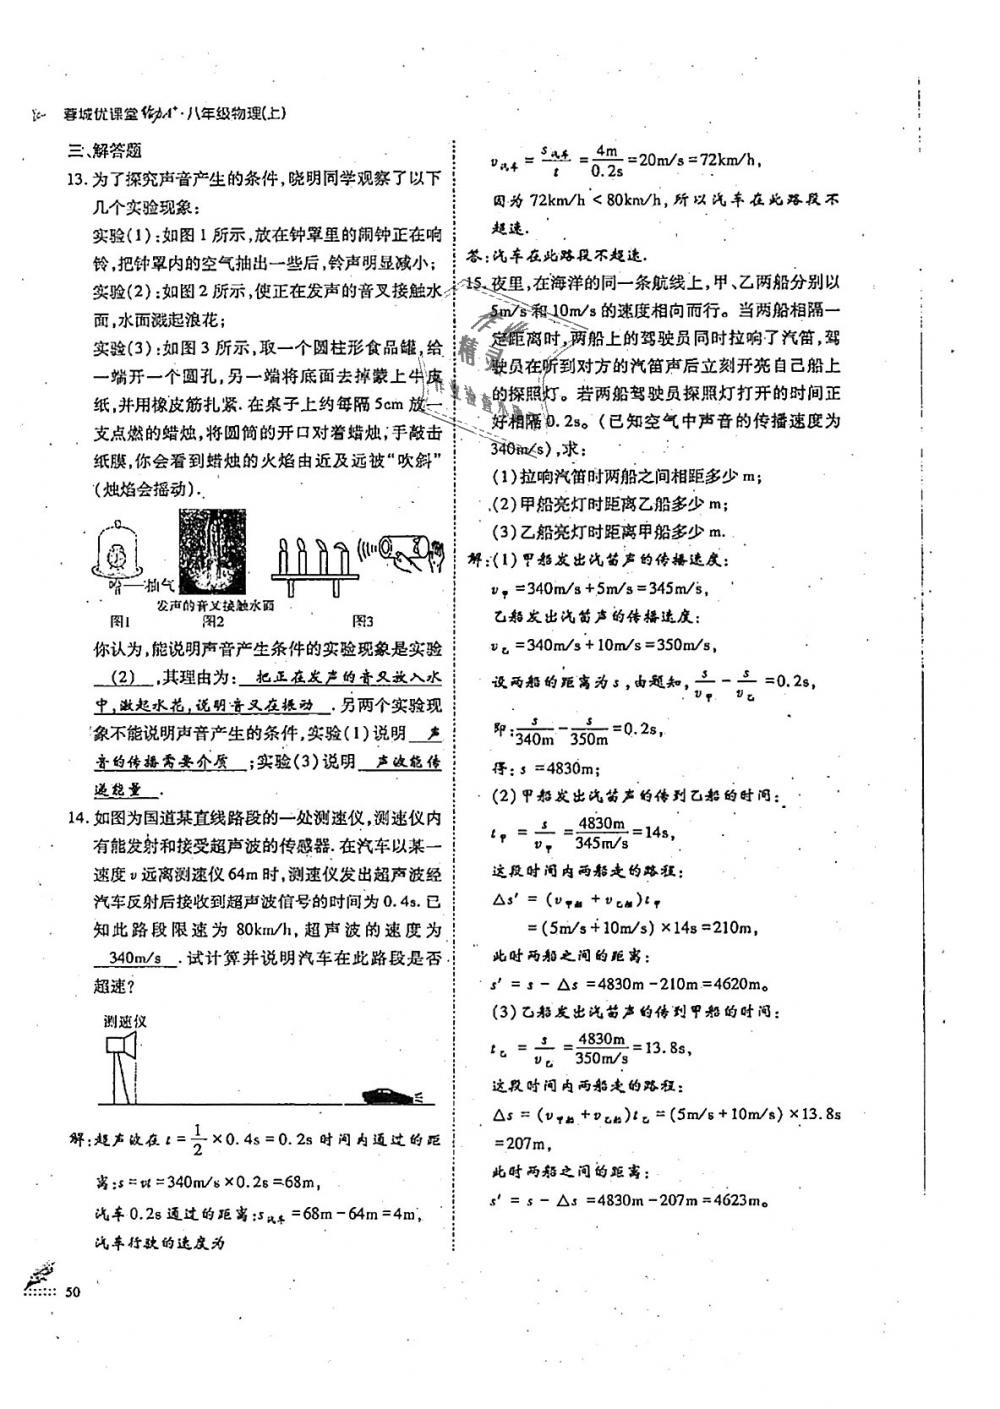 蓉城优课堂 给力A⁺·八年级物理(上)
三、解答题
13. 为了探究声音产生的条件,晓明同学观察了以下
几个实验现象:
实验(1):如图1所示,放在钟罩里的闹钟正在响
铃,把钟罩内的空气抽出一些后,铃声明显减小;
实验(2):如图2所示,使正在发声的音叉接触水
面,水面溅起浪花;
实验(3):如图3所示,取一个圆柱形食品罐,给
一端开一个圆孔,另一端将底面去掉蒙上牛皮
纸,并用橡皮筋扎紧.在桌子上约每隔5cm放一
支点燃的蜡烛,将圆筒的开口对着蜡烛,手敲击
纸膜,你会看到蜡烛的火焰由近及远被“吹斜”
(烛焰会摇动).
抽气
发声的音叉接触水面
图1 图2 图3
你认为,能说明声音产生条件的实验现象是实验
(2) ,其理由为: 把正在发声的音叉放入水
中,激起水花,说明音叉在振动 .另两个实验现
象不能说明声音产生的条件,实验(1)说明 声
音的传播需要介质 ;实验(3)说明 声波能传
递能量 .
14. 如图为国道某直线路段的一处测速仪,测速仪内
有能发射和接受超声波的传感器.在汽车以某一
速度v远离测速仪64m时,测速仪发出超声波经
汽车反射后接收到超声波信号的时间为0.4s.已
知此路段限速为80km/h,超声波的速度为
340m/s .试计算并说明汽车在此路段是否
超速?
测速仪
解:超声波在t=1/2×0.4s=0.2s时间内通过的距
离:s=vt=340m/s×0.2s=68m,
汽车0.2s通过的距离:s汽车=68m-64m=4m,
汽车行驶的速度为
50
v汽车=s汽车/t=4m/0.2s=20m/s=72km/h,
因为72km/h<80km/h,所以汽车在此路段不
超速.
答:汽车在此路段不超速.
15. 夜里,在海洋的同一条航线上,甲、乙两船分别以
5m/s和10m/s的速度相向而行。当两船相隔一
定距离时,两船上的驾驶员同时拉响了汽笛,驾
驶员在听到对方的汽笛声后立刻开亮自己船上
的探照灯。若两船驾驶员探照灯打开的时间正
好相隔0.2s。(已知空气中声音的传播速度为
340m/s),求:
(1)拉响汽笛时两船之间相距多少m;
(2)甲船亮灯时距离乙船多少m;
(3)乙船亮灯时距离甲船多少m.
解:(1)甲船发出汽笛声的传播速度:
v甲=340m/s+5m/s=345m/s,
乙船发出汽笛声的传播速度:
v乙=340m/s+10m/s=350m/s,
设两船的距离为s,由题知,s/v甲-s/v乙=0.2s,
即:s/340m-s/350m=0.2s,
得:s=4830m;
(2)甲船发出汽笛声的传到乙船的时间:
t甲=s/v甲=4830m/345m/s=14s,
这段时间内两船走的路程:
△s′=(v甲船+v乙船)t甲
=(5m/s+10m/s)×14s=210m,
此时两船之间的距离:
s′=s-△s=4830m-210m=4620m。
(3)乙船发出汽笛声的传到甲船的时间:
t乙=s/v乙=4830m/350m/s=13.8s,
这段时间内两船走的路程:
△s=(v甲船+v乙船)t乙=(5m/s+10m/s)×13.8s
=207m,
此时两船之间的距离:
s′=s-△s=4830m-207m=4623m。
作业
精灵